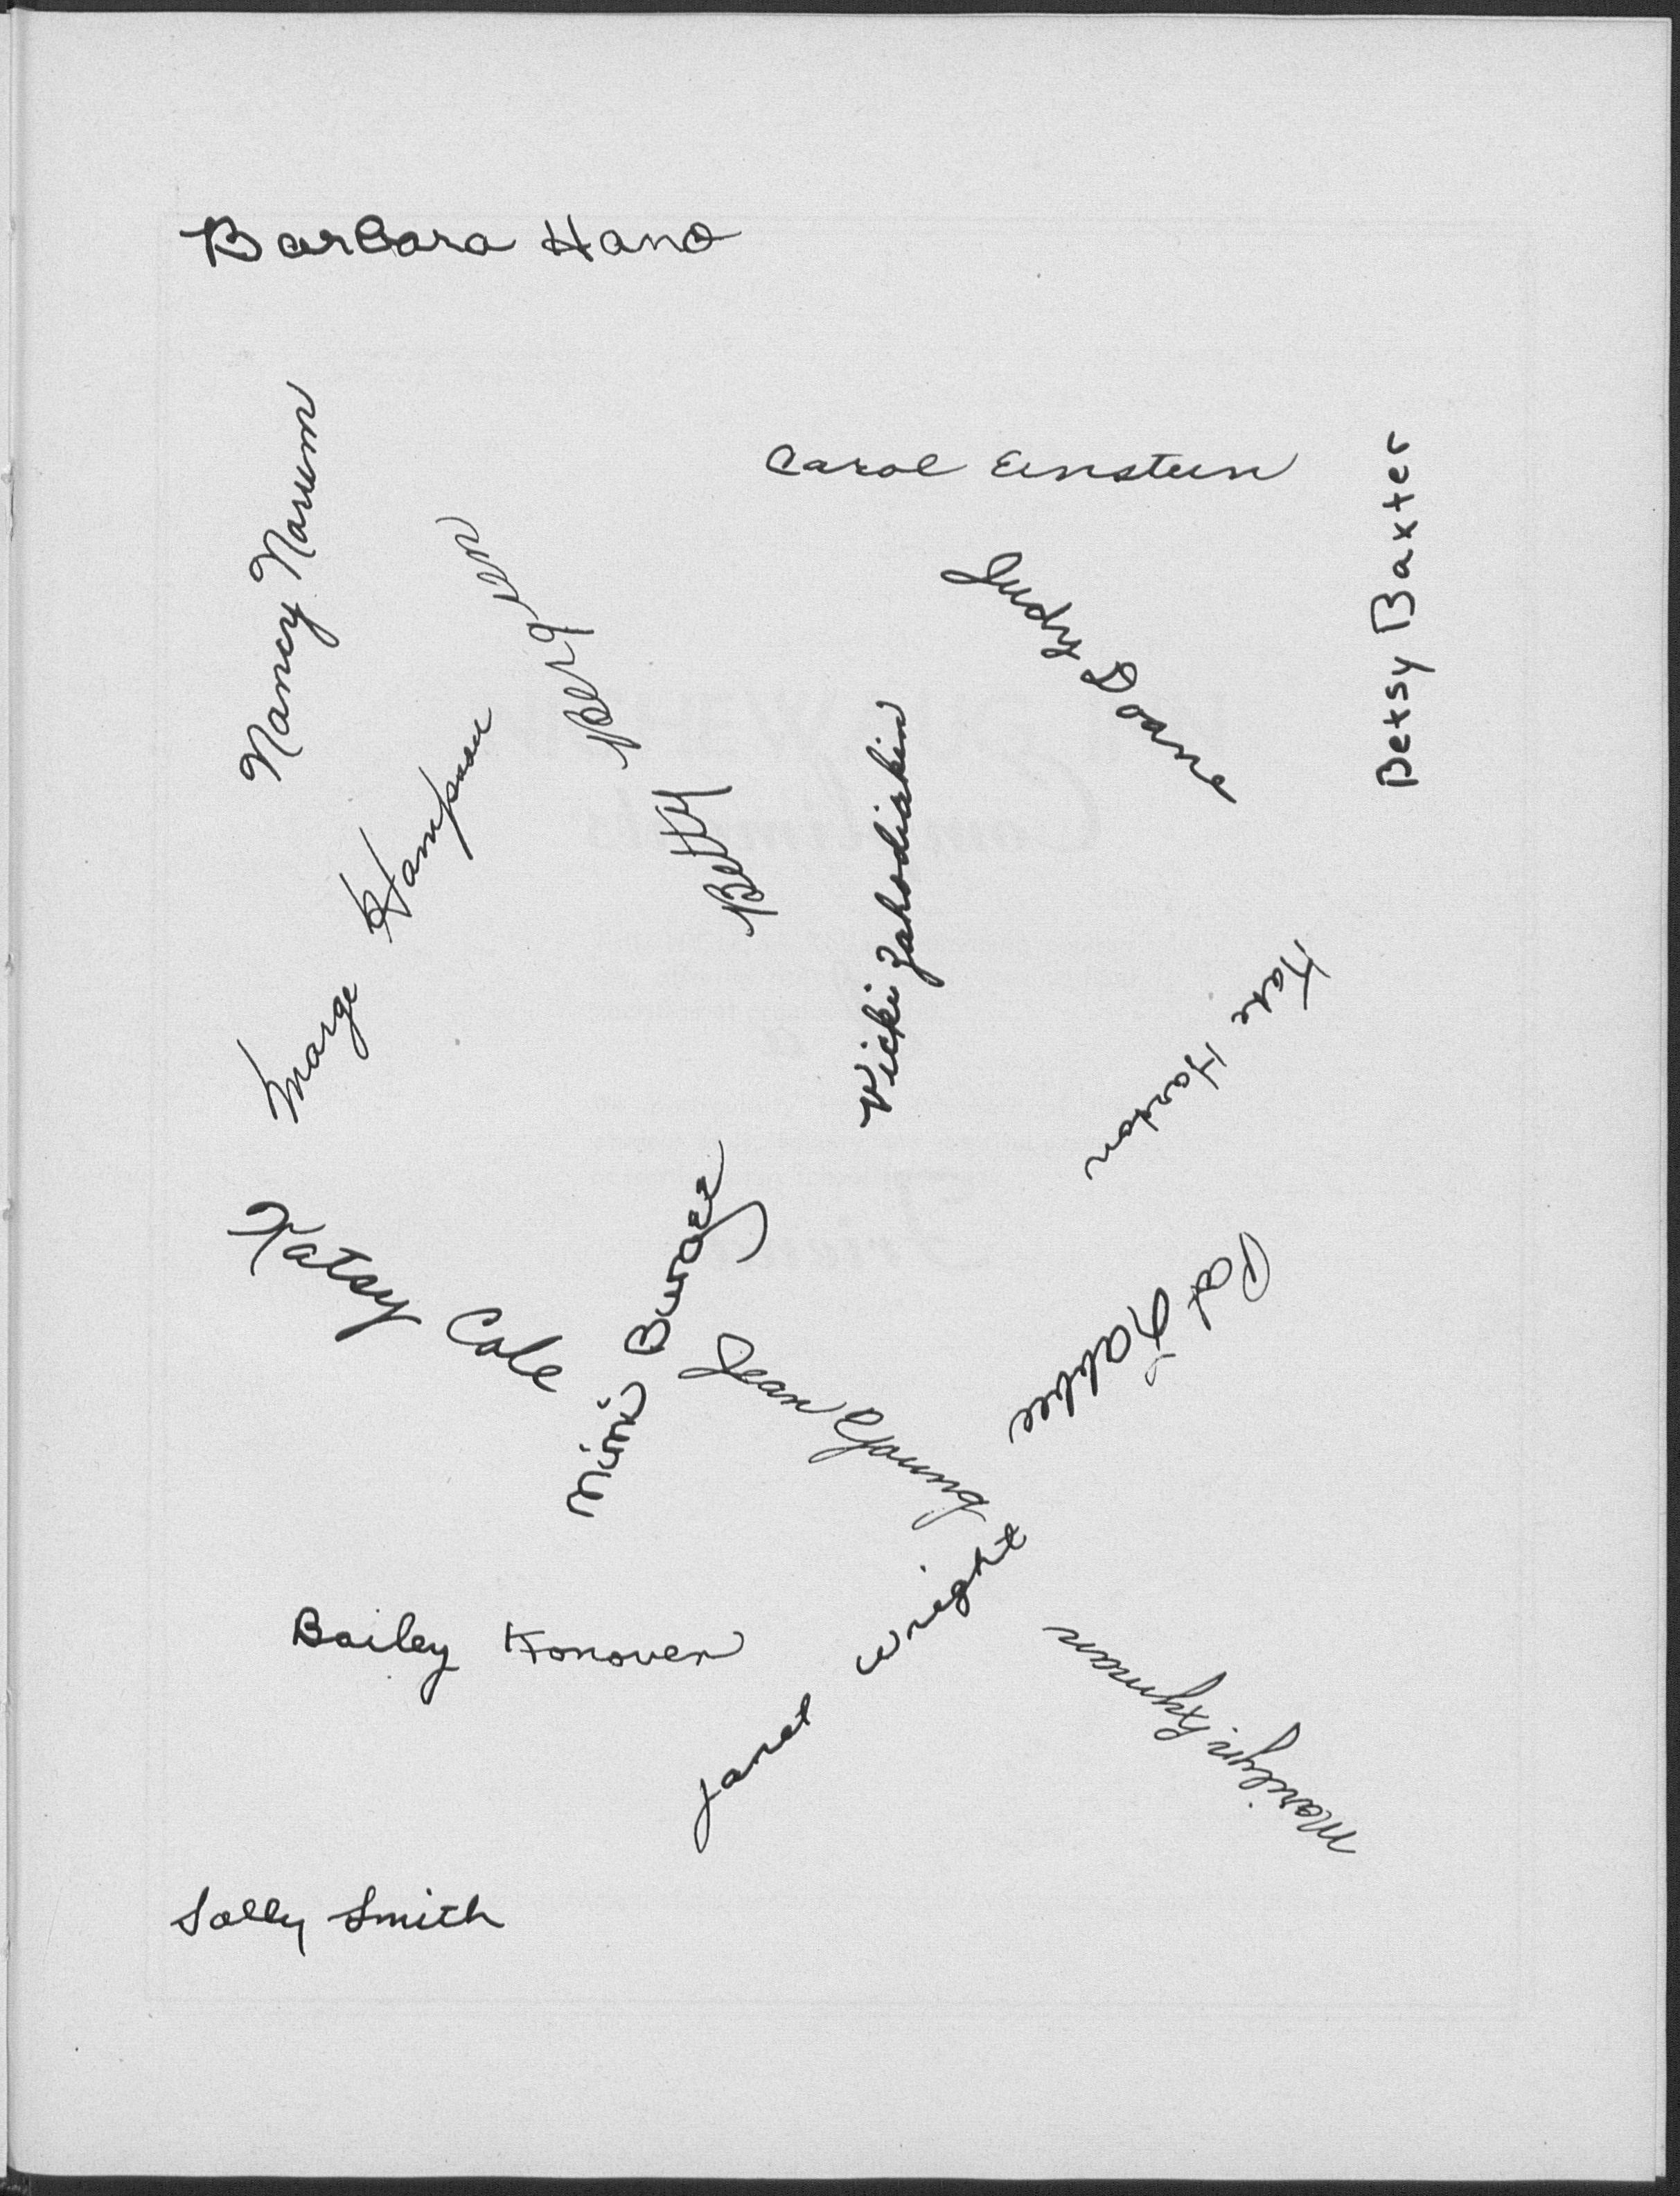 Barbara Hano
Nancy Narum
Carol Einstein
Betsy Baxter
Betty Bergren
Judy Doane
Marge Hampson
Vicki Zahodiakin
Kate Horton
Katsy Cole
Mimi Burger
Pat
Jean Young
Janet Wright
Bailey Konover
Marilyn Fxyman
Sally Smith